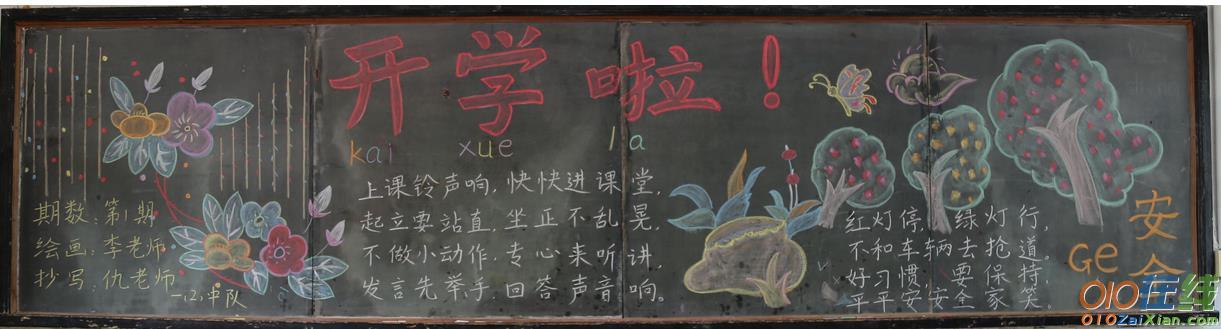 开学啦！
kai xue la
期数：第1期
绘画：李老师
抄写：仇老师
一，2，中队
上课铃声响，快快进课堂，
起立要站直，坐正不乱晃，
不做小动作，专心来听讲，
发言先举手，回答声音响。
安全
Ge
红灯停，绿灯行，
不和车辆去抢道。
好习惯，要保持，
平平安安全家笑。
010在线
010ZaiXian.com